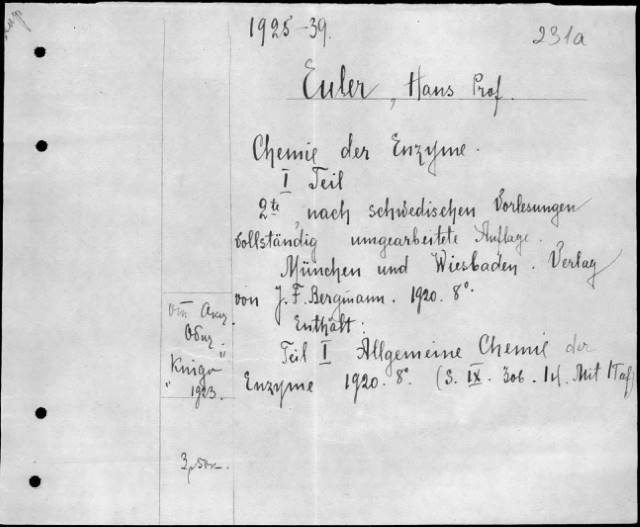 1925-39.
231a
Euler, Hans Prof.
Chemie der Enzyme.
I Teil
2te, nach schwedischen Vorlesungen
vollständig umgearbeitete Auflage.
München und Wiesbaden. Verlag
von J. F. Bergmann. 1920. 8°.
Enthält:
Teil I Allgemeine Chemie der
Enzyme 1920. 8°. (S. IX. 306. Mit 1 Taf)
От Акц.
Общ.
"Книга"
1923.